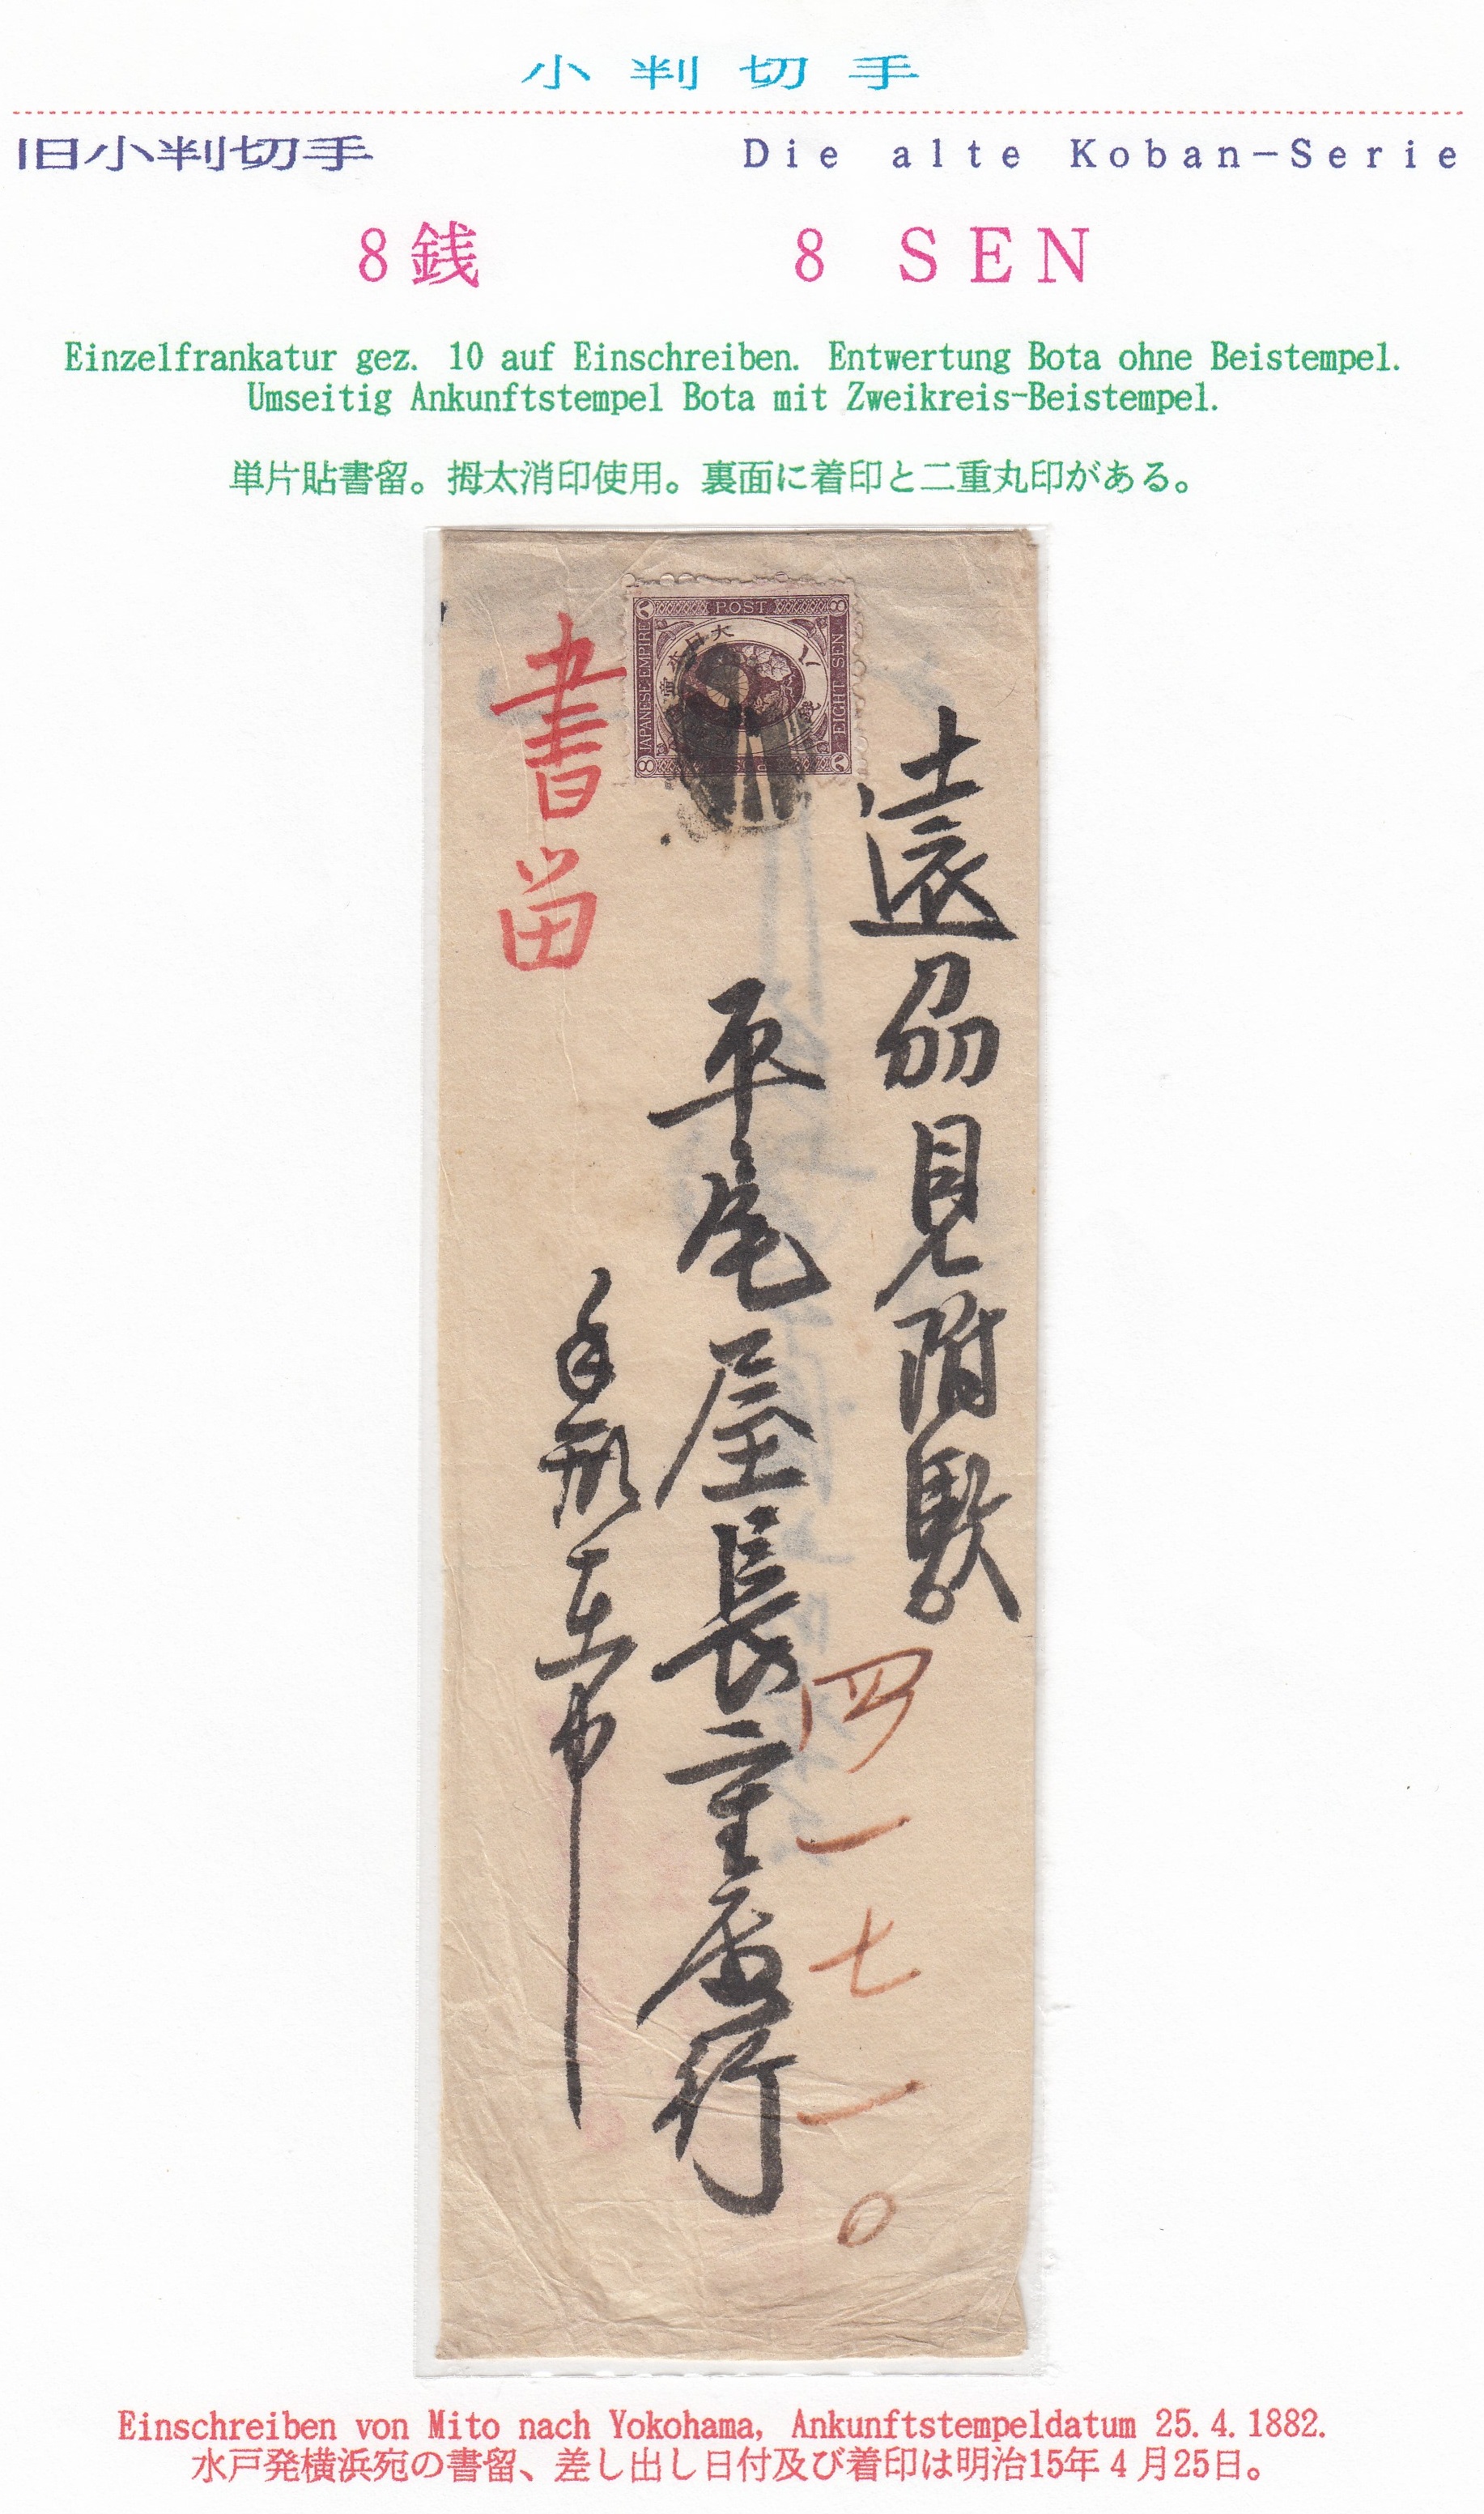 小判切手
旧小判切手
Die alte Koban-Serie
8銭
8 SEN
Einzelfrankatur gez. 10 auf Einschreiben. Entwertung Bota ohne Beistempel.
Umseitig Ankunftstempel Bota mit Zweikreis-Beistempel.
単片貼書留。拇太消印使用。裏面に着印と二重丸印がある。
POST
JAPANESE EMPIRE
EIGHT SEN
遠州見附駅
平尾屋長重店行
書留
四一七一〇
Einschreiben von Mito nach Yokohama, Ankunftstempeldatum 25.4.1882.
水戸発横浜宛の書留、差し出し日付及び着印は明治15年4月25日。